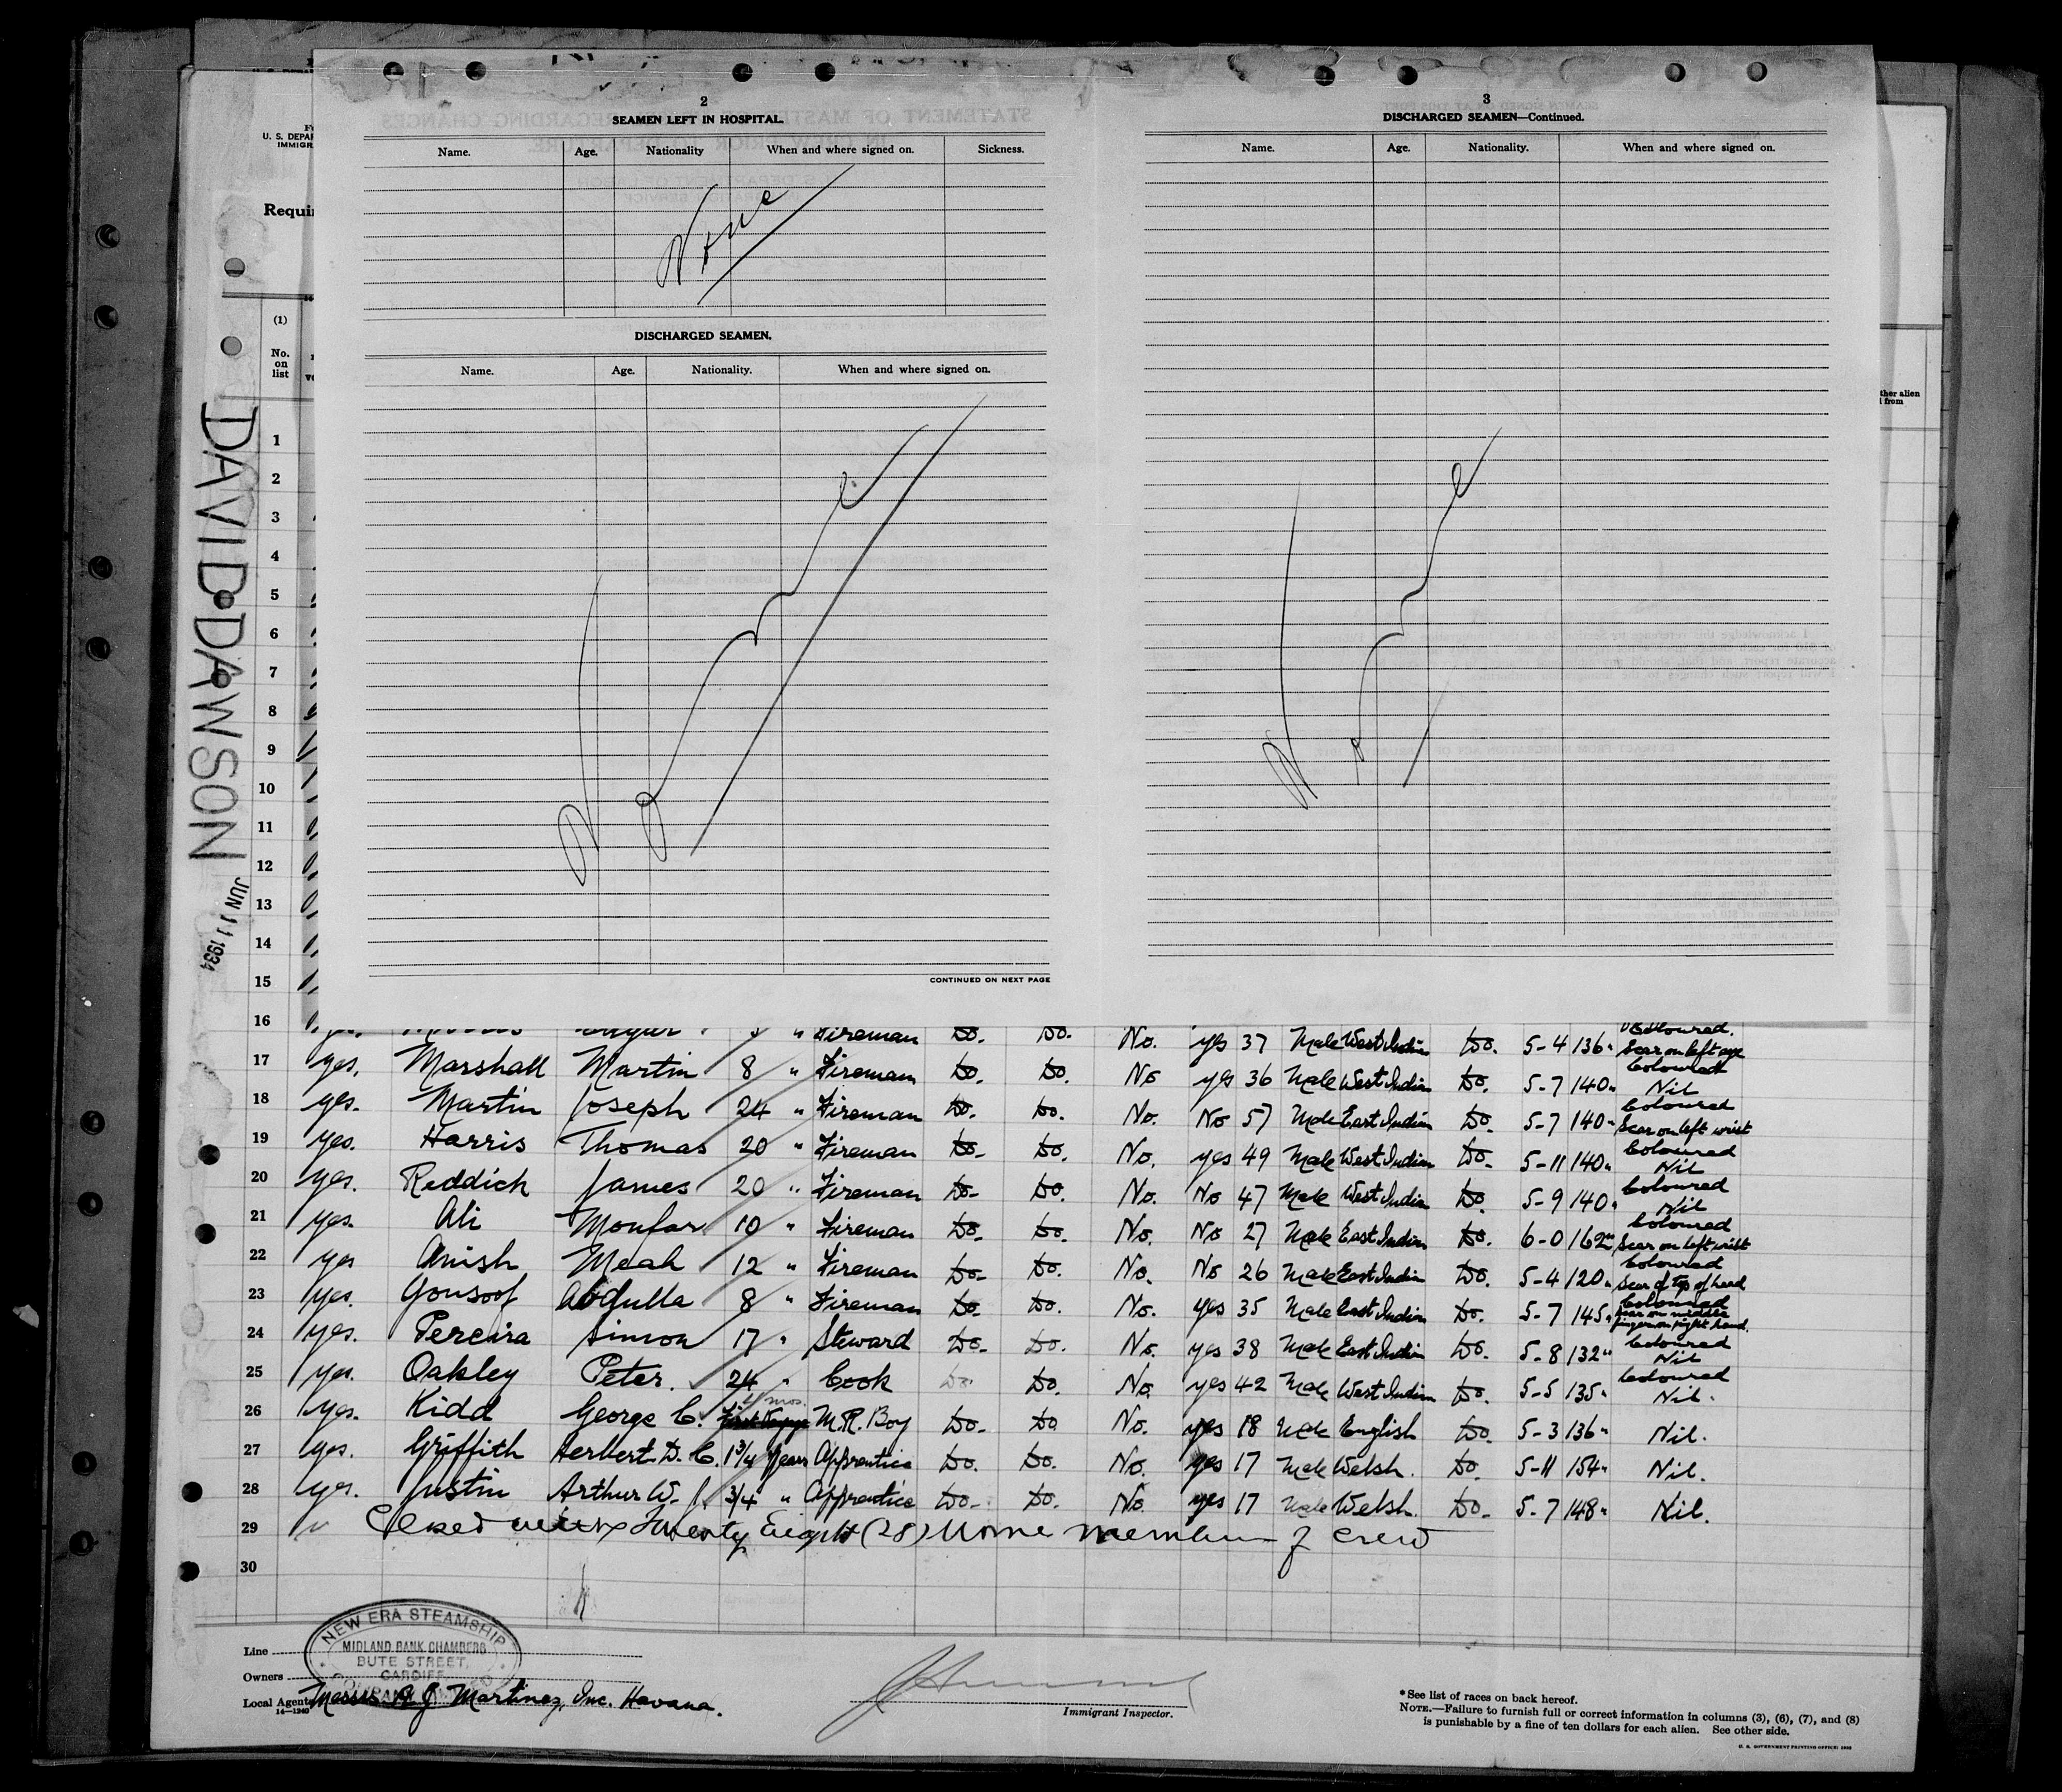 2
SEAMEN LEFT IN HOSPITAL.
Name. Age. Nationality When and where signed on. Sickness.
None
DISCHARGED SEAMEN.
Name. Age. Nationality. When and where signed on.
None
CONTINUED ON NEXT PAGE
3
DISCHARGED SEAMEN—Continued.
Name. Age. Nationality. When and where signed on.
None
U. S. DEPAR
IMMIGR
Requir
(1)
No.
on
list
ther alien
from
DAVID DAWSON
JUN 11 1934
1
2
3
4
5
6
7
8
9
10
11
12
13
14
15
16 " Fireman Do. Do. No. yes 37 Male West Indian Do. 5-4 136" Coloured. Scar on left eye
17 yes. Marshall Martin 8 " Fireman Do. Do. No yes 36 Male West Indian Do. 5-7 140" Coloured Nil
18 yes. Martin Joseph 24 " Fireman Do. Do. No. No 57 Male East Indian Do. 5-7 140" Coloured Scar on left wrist
19 yes. Harris Thomas 20 " Fireman Do- Do. No. yes 49 Male West Indian Do- 5-11 140" Coloured Nil
20 yes. Reddick James 20 " Fireman Do- Do. No. No 47 Male West Indian Do. 5-9 140" Coloured Nil
21 yes. Ali Monfar 10 " Fireman Do- Do. No. No 27 Male East Indian Do. 6-0 162" Coloured Scar on left wrist
22 yes Anish Meah 12 " Fireman Do- Do. No. No 26 Male East Indian Do. 5-4 120" Coloured Scar of top of head
23 yes. Yousoof Abdulla 8 " Fireman Do. Do. No. yes 35 Male East Indian Do. 5-7 145" Coloured Scar on middle finger on right hand.
24 yes. Pereira Simon 17 " Steward Do- Do. No. yes 38 Male East Indian Do. 5-8 132" Coloured Nil
25 yes. Oakley Peter. 24 " Cook Do. Do. No. yes 42 Male West Indian Do. 5-5 135" Coloured Nil.
26 yes. Kidd George C. mos. M.R. Boy Do- Do No. yes 18 Male English Do. 5-3 136" Nil.
27 yes. Griffith Herbert D. C. 1 3/4 years Apprentice Do. Do. No. yes 17 Male Welsh. Do. 5-11 154" Nil.
28 yes. Justin Arthur W. J. 3/4 " Apprentice Do- Do. No. yes 17 Male Welsh. Do- 5-7 148" Nil.
29 Closed with Twenty Eight (28) members of crew
30
Line
Owners
NEW ERA STEAMSHIP
MIDLAND BANK CHAMBERS
BUTE STREET,
CARDIFF.
COMPANY
Local Agents Messrs A J Martinez, Inc. Havana.
14—1240
Immigrant Inspector.
* See list of races on back hereof.
NOTE.—Failure to furnish full or correct information in columns (3), (6), (7), and (8)
is punishable by a fine of ten dollars for each alien. See other side.